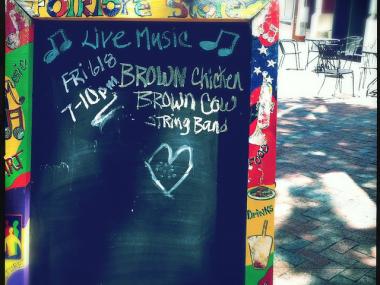 FOLKLORE
Live Music
FRi 6/8
7-10pm
BROWN Chicken
BROWN COW
STRING Band
Music
ART
FOOD
DRINKS